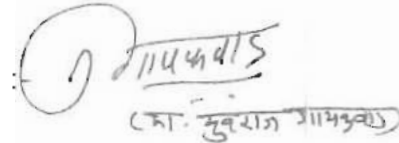 गायकवाड
(मा. युवराज गायकवाड)